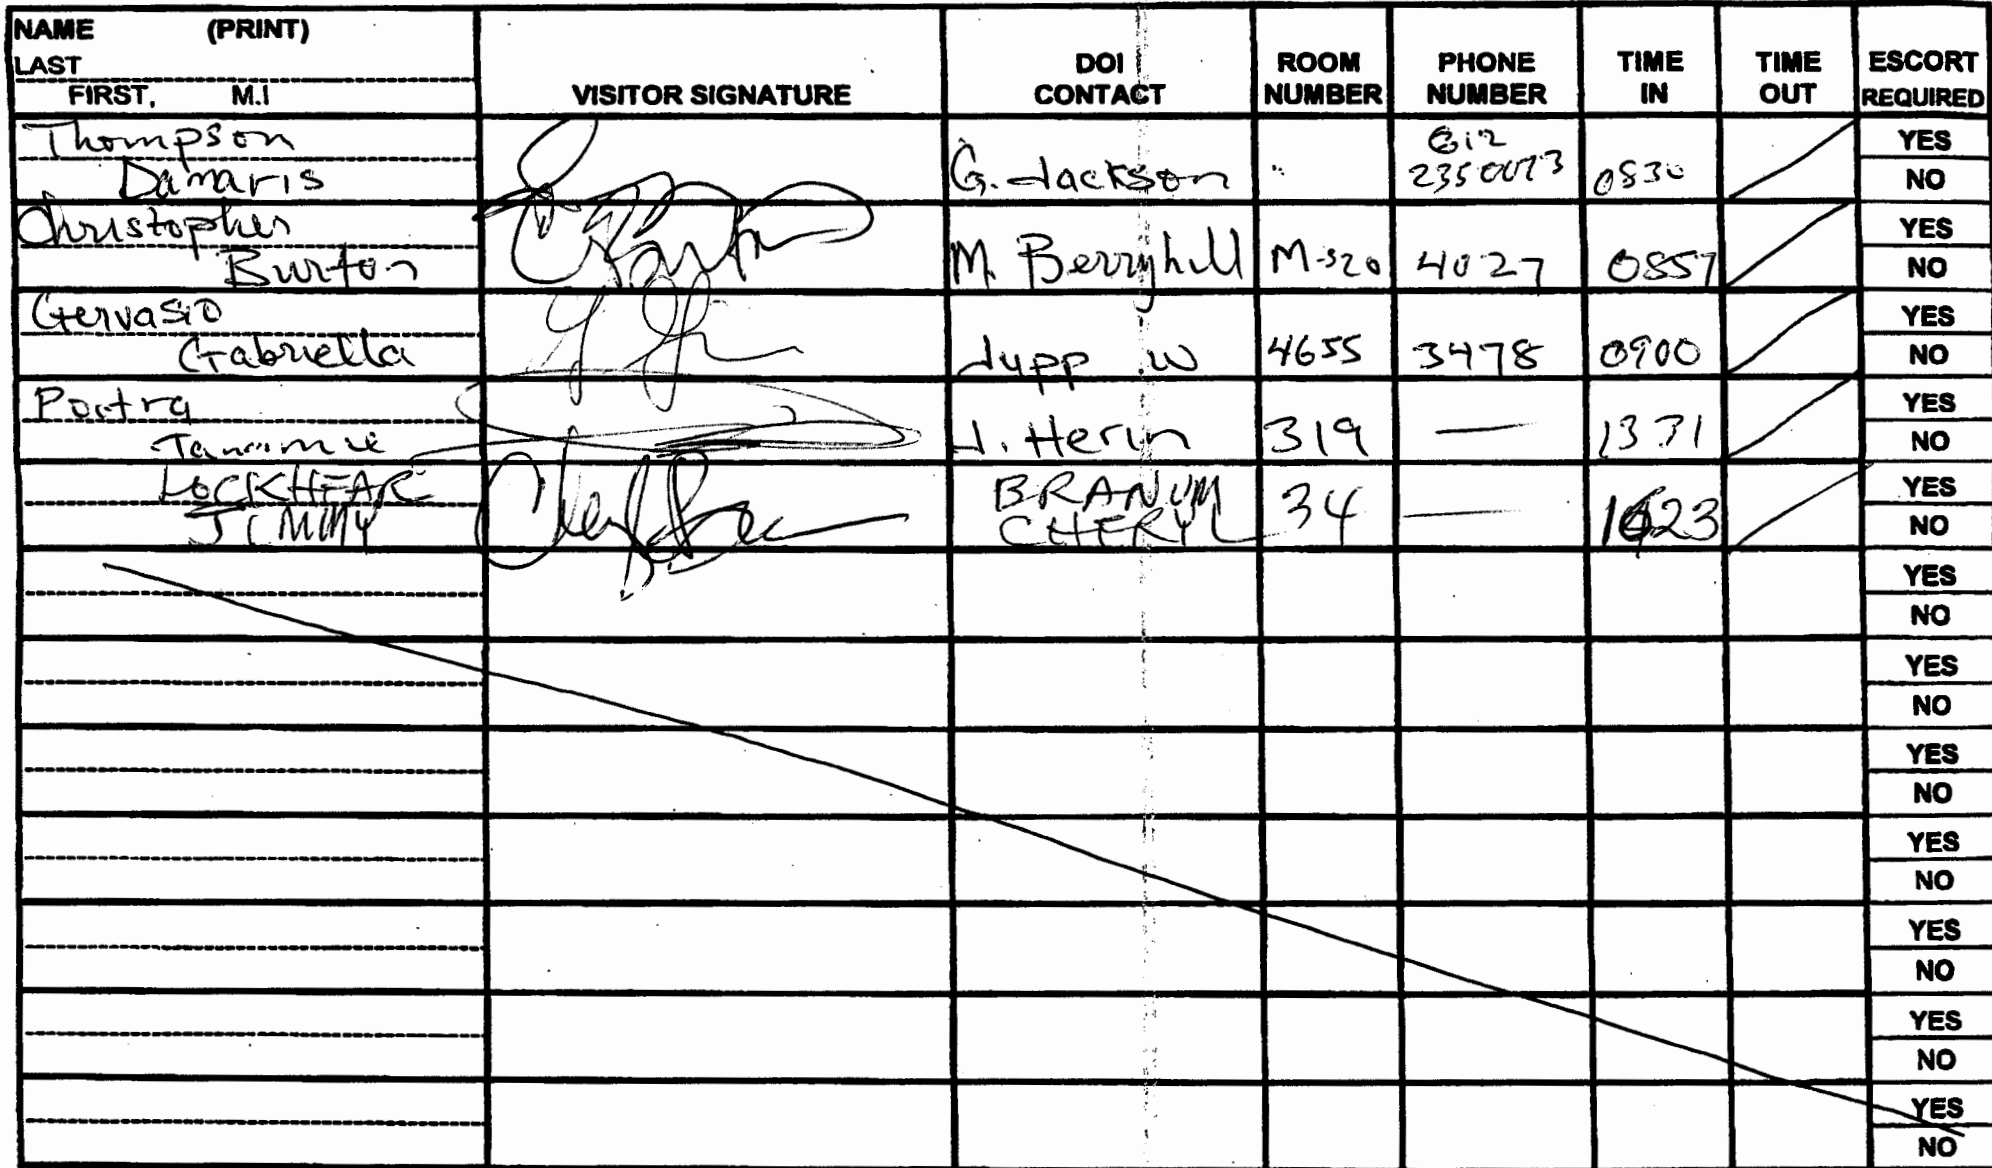 NAME (PRINT)
LAST
FIRST, M.I
VISITOR SIGNATURE
DOI
CONTACT
ROOM
NUMBER
PHONE
NUMBER
TIME
IN
TIME
OUT
ESCORT
REQUIRED
Thompson
Damaris
G. Jackson
612
2350073
0830
YES
NO
Christopher
Burton
M. Berryhill
M-320
4027
0857
YES
NO
Gervasio
Gabriella
Jupp W
4655
3478
0900
YES
NO
Portra
Tammie
J. Herin
319
—
1331
YES
NO
LOCKHEAR
JIMMY
BRANUM
CHERYL
34
—
1623
YES
NO
YES
NO
YES
NO
YES
NO
YES
NO
YES
NO
YES
NO
YES
NO